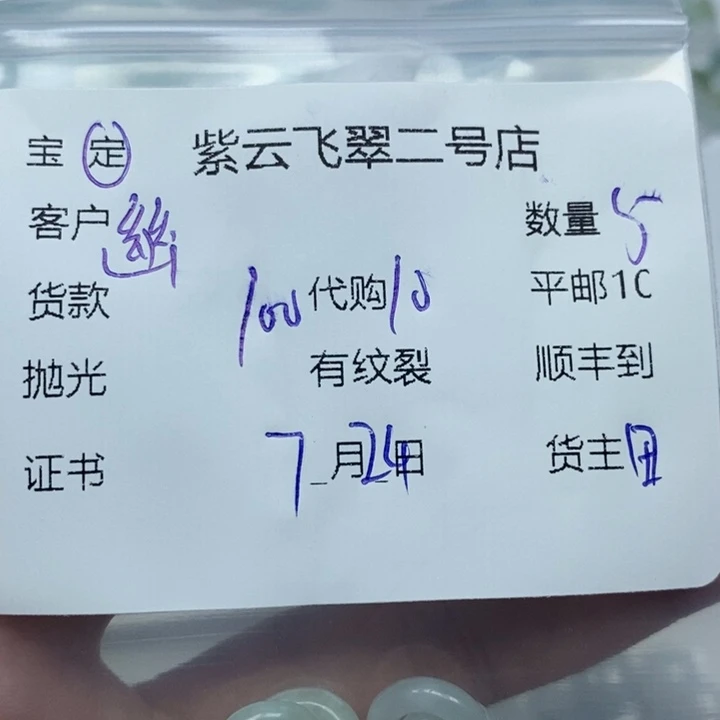 宝 定 紫云飞翠二号店
客户 数量 5
货款 100 代购 10 平邮1C
抛光 有纹裂 顺丰到
证书 7_月24日 货主 丑